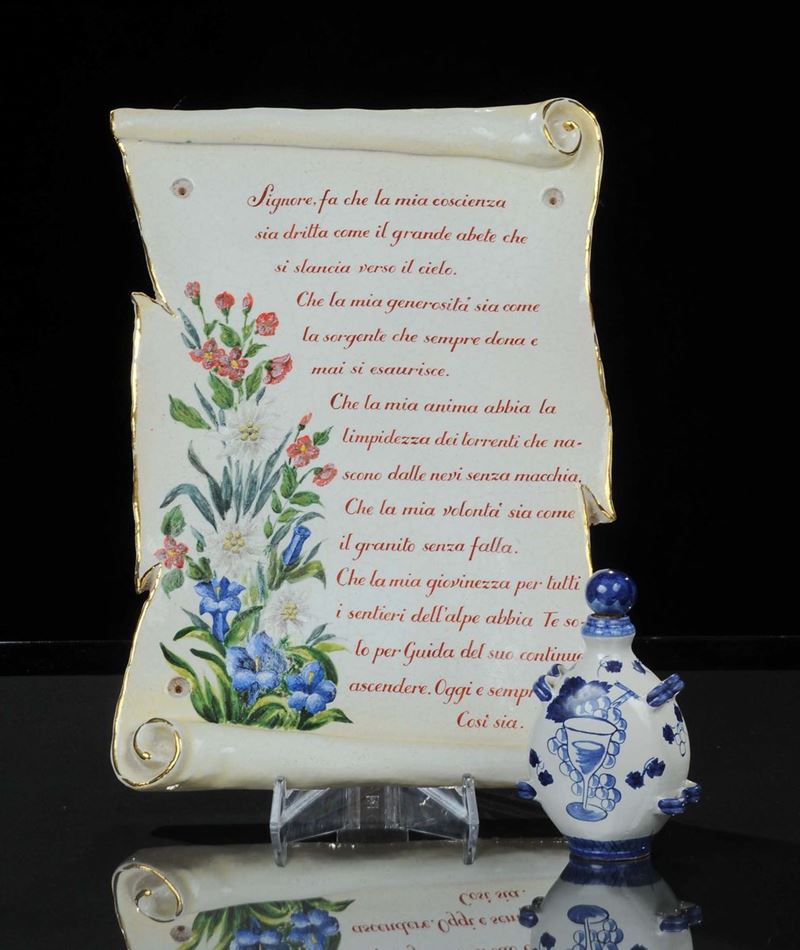 Signore, fa che la mia coscienza
sia dritta come il grande abete che
si slancia verso il cielo.
Che la mia generosità sia come
la sorgente che sempre dona e
mai si esaurisce.
Che la mia anima abbia la
limpidezza dei torrenti che na-
scono dalle nevi senza macchia.
Che la mia volontà sia come
il granito senza falla.
Che la mia giovinezza per tutti
i sentieri dell'alpe abbia Te so-
lo per Guida del suo continuo
ascendere. Oggi e sempr
Così sia.